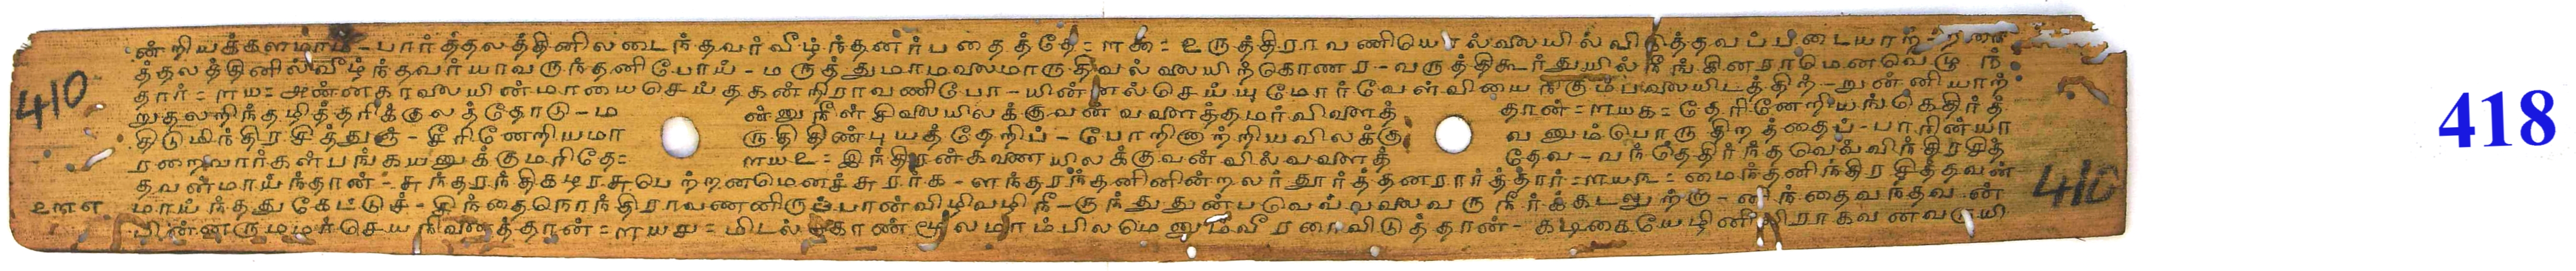 ன்றியக்களமாம் - பார்த்தலத்தினிலடைந்தவர்வீழ்ந்தனர்பதைத்தே = ௱௯ = உருத்திராவணியெ வில்
த்தலத்தினில்வீழ்ந்தவர்யாவருந்தனிபோய் - மருத்துமாமலைமாருதிவல்லையிற்கொணர - வருத்திகூர்துயில்நீங்கினராமெனவெழுந்
தார் = ௱௰ = அன்னகரலையின்மாயைசெய்தகன்றிராவணிபோ - யின்னல்செய்யுமோர்வேள்வியை றுன்னியாற்
றுதலறிந்தழித்தரிக்குலத்தோடு - ம ன்னுநீள்சிலையிலக்குவன்வளைத்தமர்விளைத் தான் = ௱௰௧ = தேரினேறியங்கெதிர்த்
திடுமிந்திரசித்து - சீரினேறியமா ருதிதிண்புயத்தேறிப் - போரினாற்றியவிலக்கு வனும்பொருதிறத்தைப் - பாரின்யா
ரறைவார்கள்பங்கயனுக்குமரிதே = ௱௰௨ = இந்திரன்கணையிலக்குவன்வில்வளைத் தேவ - வந்தெதிர்ந்தவெவ்விந்திரசித்
தவன்மாய்ந்தான் - சுந்தரந்திகழரசுபெற்றனமெனச்சுரர்க - ளந்தரந்தனினின்றலர்தூர்த்தனரார்த்தார் = ௱௰௩ = மைந்தனிந்திரசித்தவன்
உ௱எ மாய்ந்ததுகேட்டுச் - சிந்தைநொந்திராவணனிருபான்விழிவழிநீ - குந்துதுன்படுவெவ்வலைவருநீர்க்கடலுற்று - னிந்தைவந்தவன்
பின்னருமமர்செயநினைத்தான் = ௱௰௪ = மிடல்கொண்மூலமாம்பிலமெனும்வீரரைவிடுத்தான் - கடிகையேழினி ராகவன்வடுயி
410
410
418